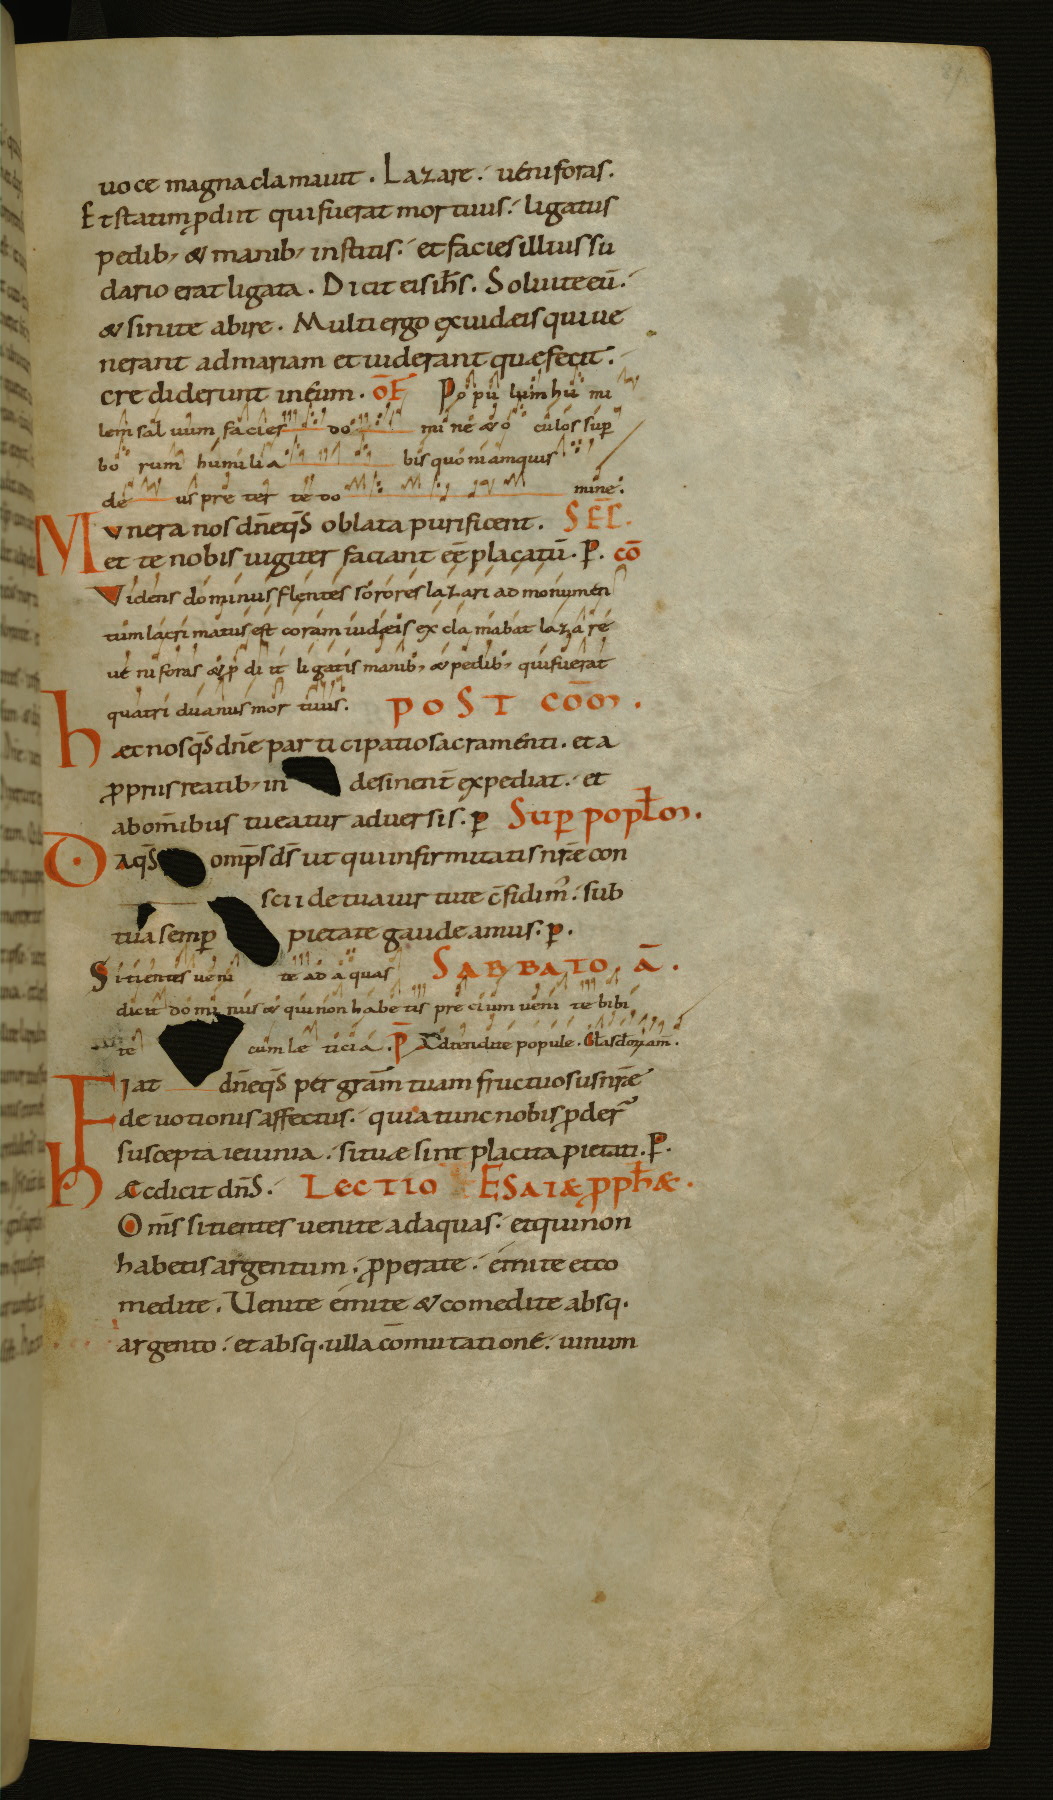 uoce magna clamauit . Lazare . ueni foras .
Et statim pdiit qui fuerat mortuus . ligatus
pedib, & manib, institis . et facies illius su
dario erat ligata . Dicit eis ih̅s . Soluite eu̅ .
& sinite abire . Multi ergo ex iudæis qui ue
nerant ad mariam et uiderant quæ fecit .
crediderunt in eum . OF Populum humi
lem saluum facies do mine & oculos sup
bo rum humilia bis quoniam quis
de us preter te do mine .
Munera nos dn̅e qs̅ oblata purificent . SEC̅ .
et te nobis iugiter faciant ee̅ placatu̅ . P . co̅
Videns dominus flentes sorores lazari ad monumen
tum lacrimatus est coram iudæis ex clamabat lazare
ueni foras & pdiit ligatis manib, & pedib, qui fuerat
quatriduanus mortuus . POST COM̅ .
hæc nos qs̅ dn̅e participatio sacramenti . et a
propriis reatib, in desinent̅ expediat . et
ab om̅ibus tueatur aduersis . p Sup poplm̅ .
Da qs̅ omps̅ ds̅ ut qui infirmitatis nr̅e con
scii de tua uirtute c̅fidim . sub
tua semp pietate gaudeamus . p .
Sitientes ueni te ad aquas SABBATO . A̅ .
dicit dominus & qui non habetis precium ueni te bibi
te cum leticia . P̅ Adtendite popule .
Fiat dn̅e qs̅ per gra̅m tuam fructuosus nr̅æ
deuotionis affectus . quia tunc nobis pder̅
suscepta ieiunia . si tuæ sint placita pietati . P .
hÆc dicit dn̅s . LECTIO ESAIÆ PPH̅Æ .
Om̅s sitientes uenite ad aquas . et qui non
habetis argentum . pperate . emite et co
medite . Uenite emite & comedite absq .
argento . et absq . ulla co̅mutatione . uinum